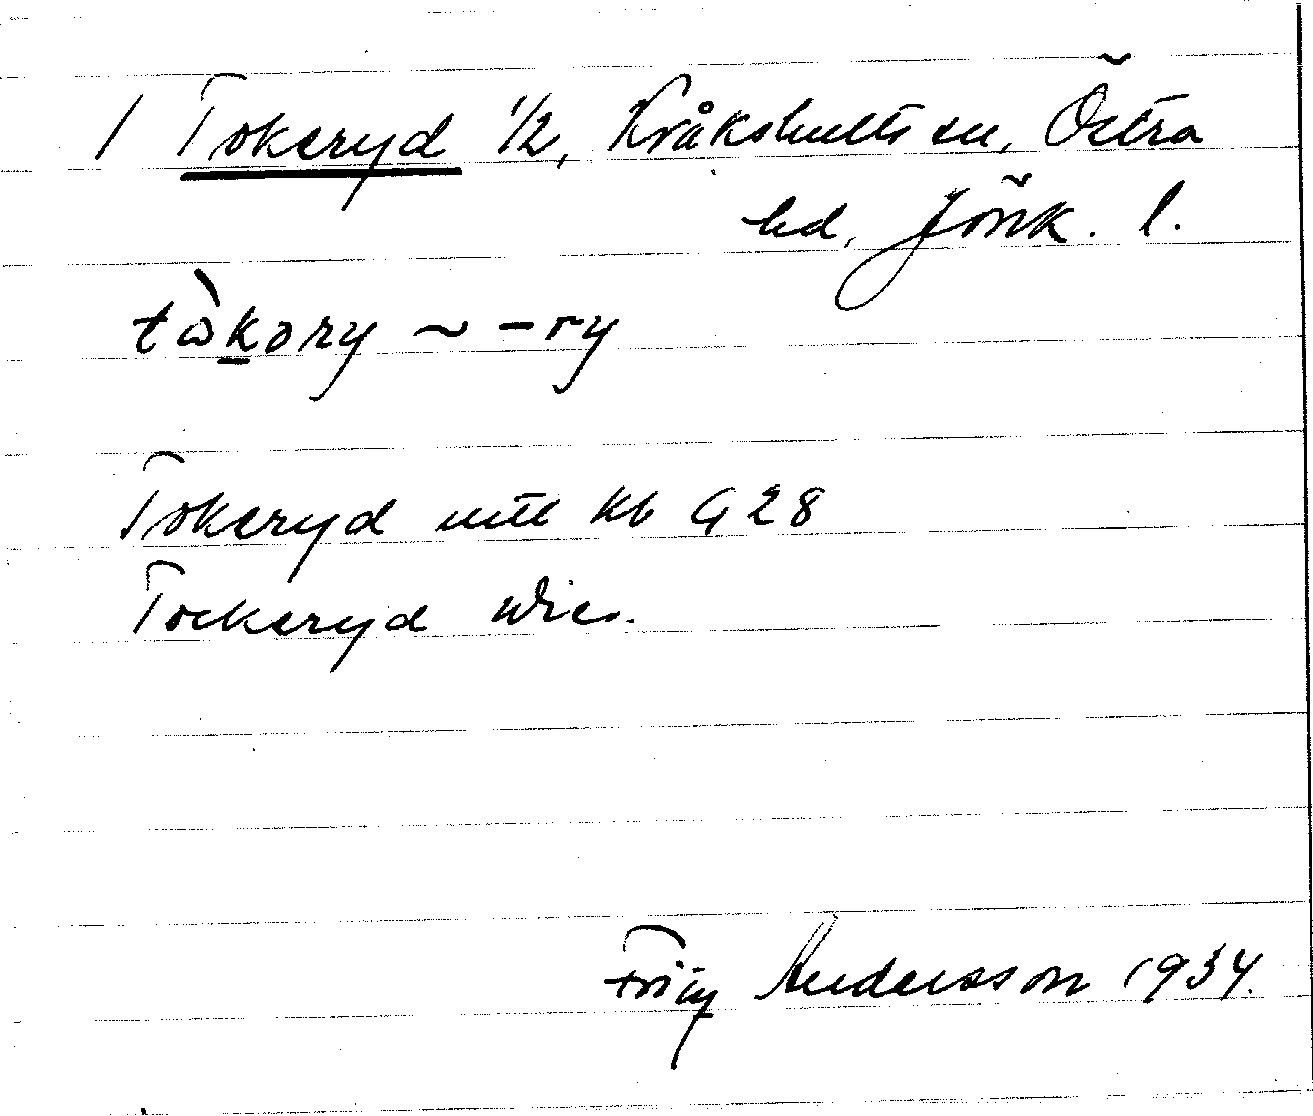 / Tokeryd 1/2, Kråkshults sn, Östra
hd, Jönk. l.
tὼkory ~ -ry
Tokeryd mtl kb G 28
Tockeryd Wies.
Fritz Andersson 1934.